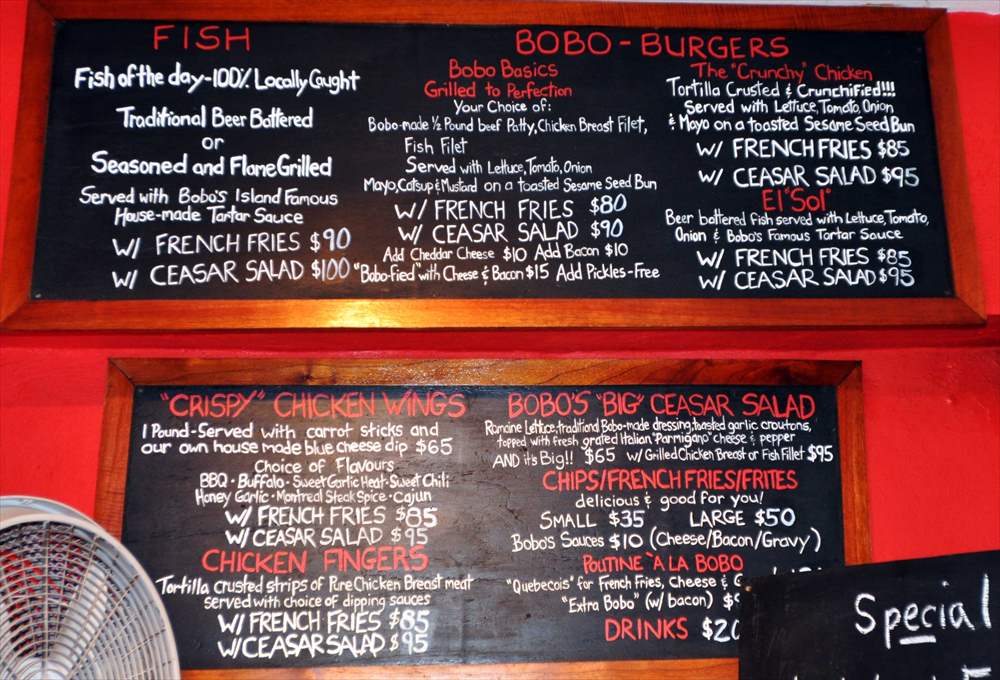 FISH
Fish of the day-100% Locally Caught
Traditional Beer Battered
or
Seasoned and Flame Grilled
Served with Bobo's Island Famous
House-made Tartar Sauce
W/ FRENCH FRIES $90
W/ CEASAR SALAD $100
BOBO-BURGERS
Bobo Basics
Grilled to Perfection
Your Choice of:
Bobo-made ½ Pound beef Patty, Chicken Breast Filet,
Fish Filet
Served with Lettuce, Tomato, Onion
Mayo, Catsup & Mustard on a toasted Sesame Seed Bun
W/ FRENCH FRIES $80
W/ CEASAR SALAD $90
Add Cheddar Cheese $10 Add Bacon $10
"Bobo-fied" with Cheese & Bacon $15 Add Pickles-Free
The "Crunchy" Chicken
Tortilla Crusted & Crunchified!!!
Served with Lettuce, Tomato, Onion
& Mayo on a toasted Sesame Seed Bun
W/ FRENCH FRIES $85
W/ CEASAR SALAD $95
El "Sol"
Beer battered fish served with Lettuce, Tomato,
Onion & Bobo's Famous Tartar Sauce
W/ FRENCH FRIES $85
W/ CEASAR SALAD $95
"CRISPY" CHICKEN WINGS
1 Pound-Served with carrot sticks and
our own house made blue cheese dip $65
Choice of Flavours
BBQ · Buffalo · Sweet Garlic Heat · Sweet Chili
Honey Garlic · Montreal Steak Spice · Cajun
W/ FRENCH FRIES $85
W/ CEASAR SALAD $95
CHICKEN FINGERS
Tortilla crusted strips of Pure Chicken Breast meat
served with choice of dipping sauces
W/ FRENCH FRIES $85
W/ CEASAR SALAD $95
BOBO'S "BIG" CEASAR SALAD
Romaine Lettuce, traditional Bobo-made dressing, toasted garlic croutons,
topped with fresh grated Italian "Parmigano" cheese & pepper
AND it's Big!! $65 W/ Grilled Chicken Breast or Fish Fillet $95
CHIPS/FRENCH FRIES/FRITES
delicious & good for you!
SMALL $35 LARGE $50
Bobo's Sauces $10 (Cheese/Bacon/Gravy)
POUTINE `A LA BOBO
"Quebecois" for French Fries, Cheese & G
"Extra Bobo" (w/ bacon) $
DRINKS $20
Special